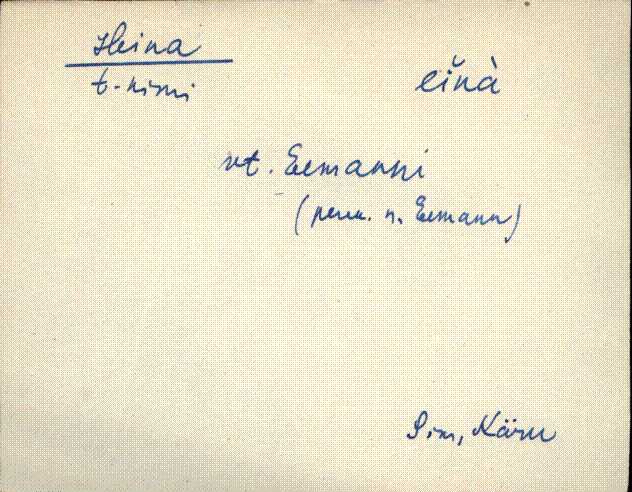 Heina
t-nimi
eĭnà
vt. Eemanni
(perek. n. Eemann)
Sim, Käru